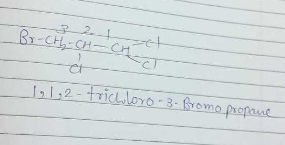 3 2 1
Br-CH₂-CH-CH-Cl
Cl Cl
1,1,2-trichloro-3-Bromo propane